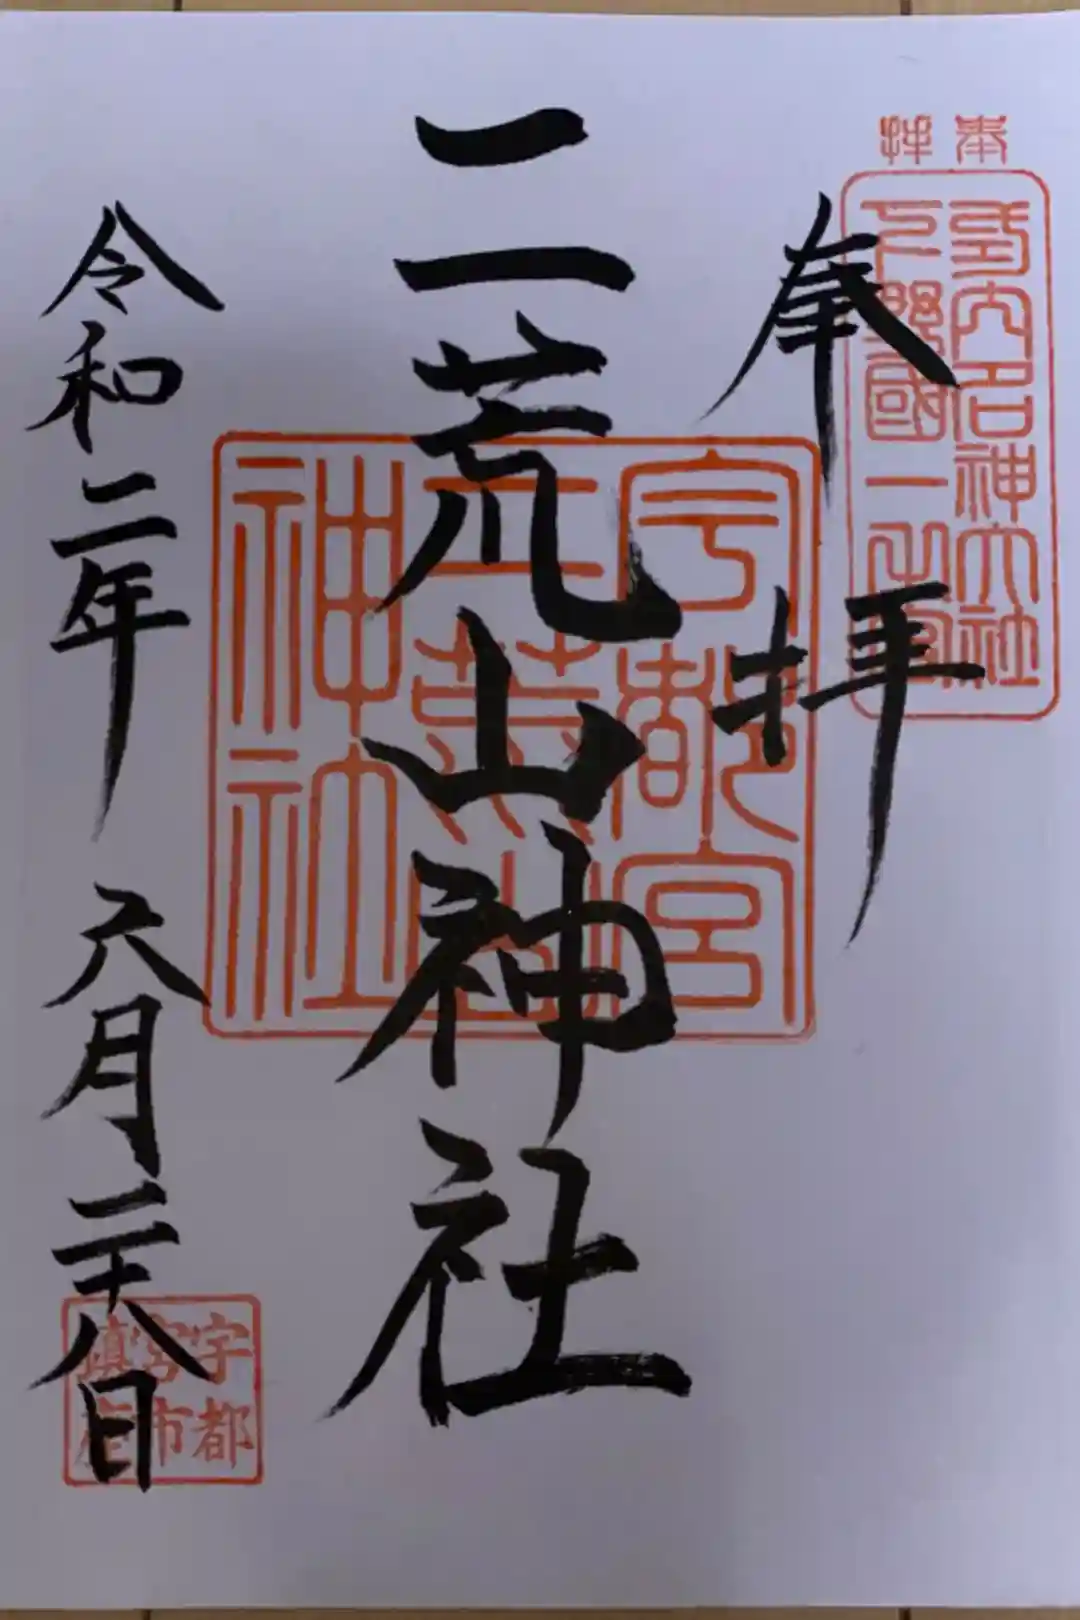 奉拝
式内名神大社
下野國一之宮
奉拝
宇都宮
二荒山
神社
二荒山神社
令和二年 六月二十八日
宇都
宮市
鎮座